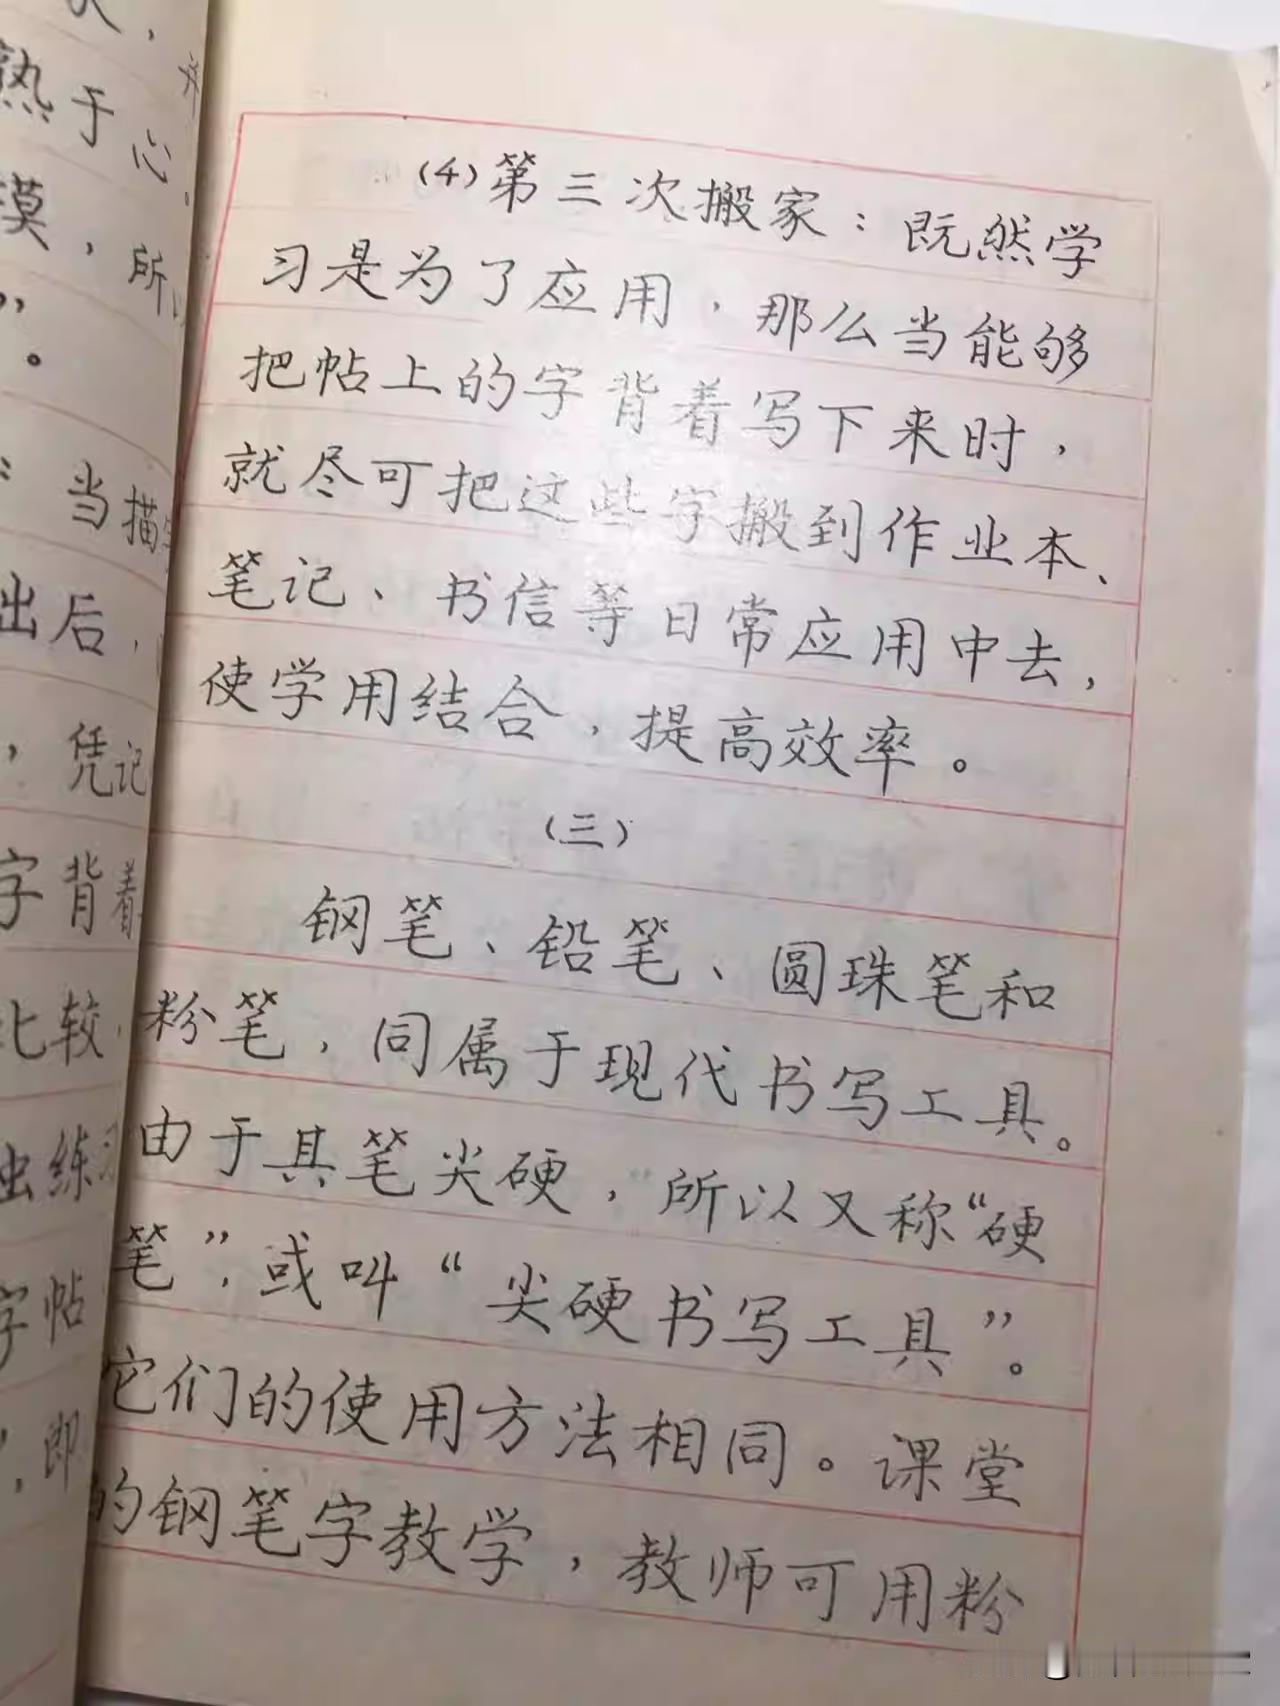 ，并
熟于心。
摸，所以
”。
：当描
出后，
，凭记
字背着
比较，
出练习
字帖
”，即
(4)第三次搬家：既然学
习是为了应用，那么当能够
把帖上的字背着写下来时，
就尽可把这些字搬到作业本、
笔记、书信等日常应用中去，
使学用结合，提高效率。
(三)
钢笔、铅笔、圆珠笔和
粉笔，同属于现代书写工具。
由于其笔尖硬，所以又称“硬
笔”，或叫“尖硬书写工具”。
它们的使用方法相同。课堂
的钢笔字教学，教师可用粉